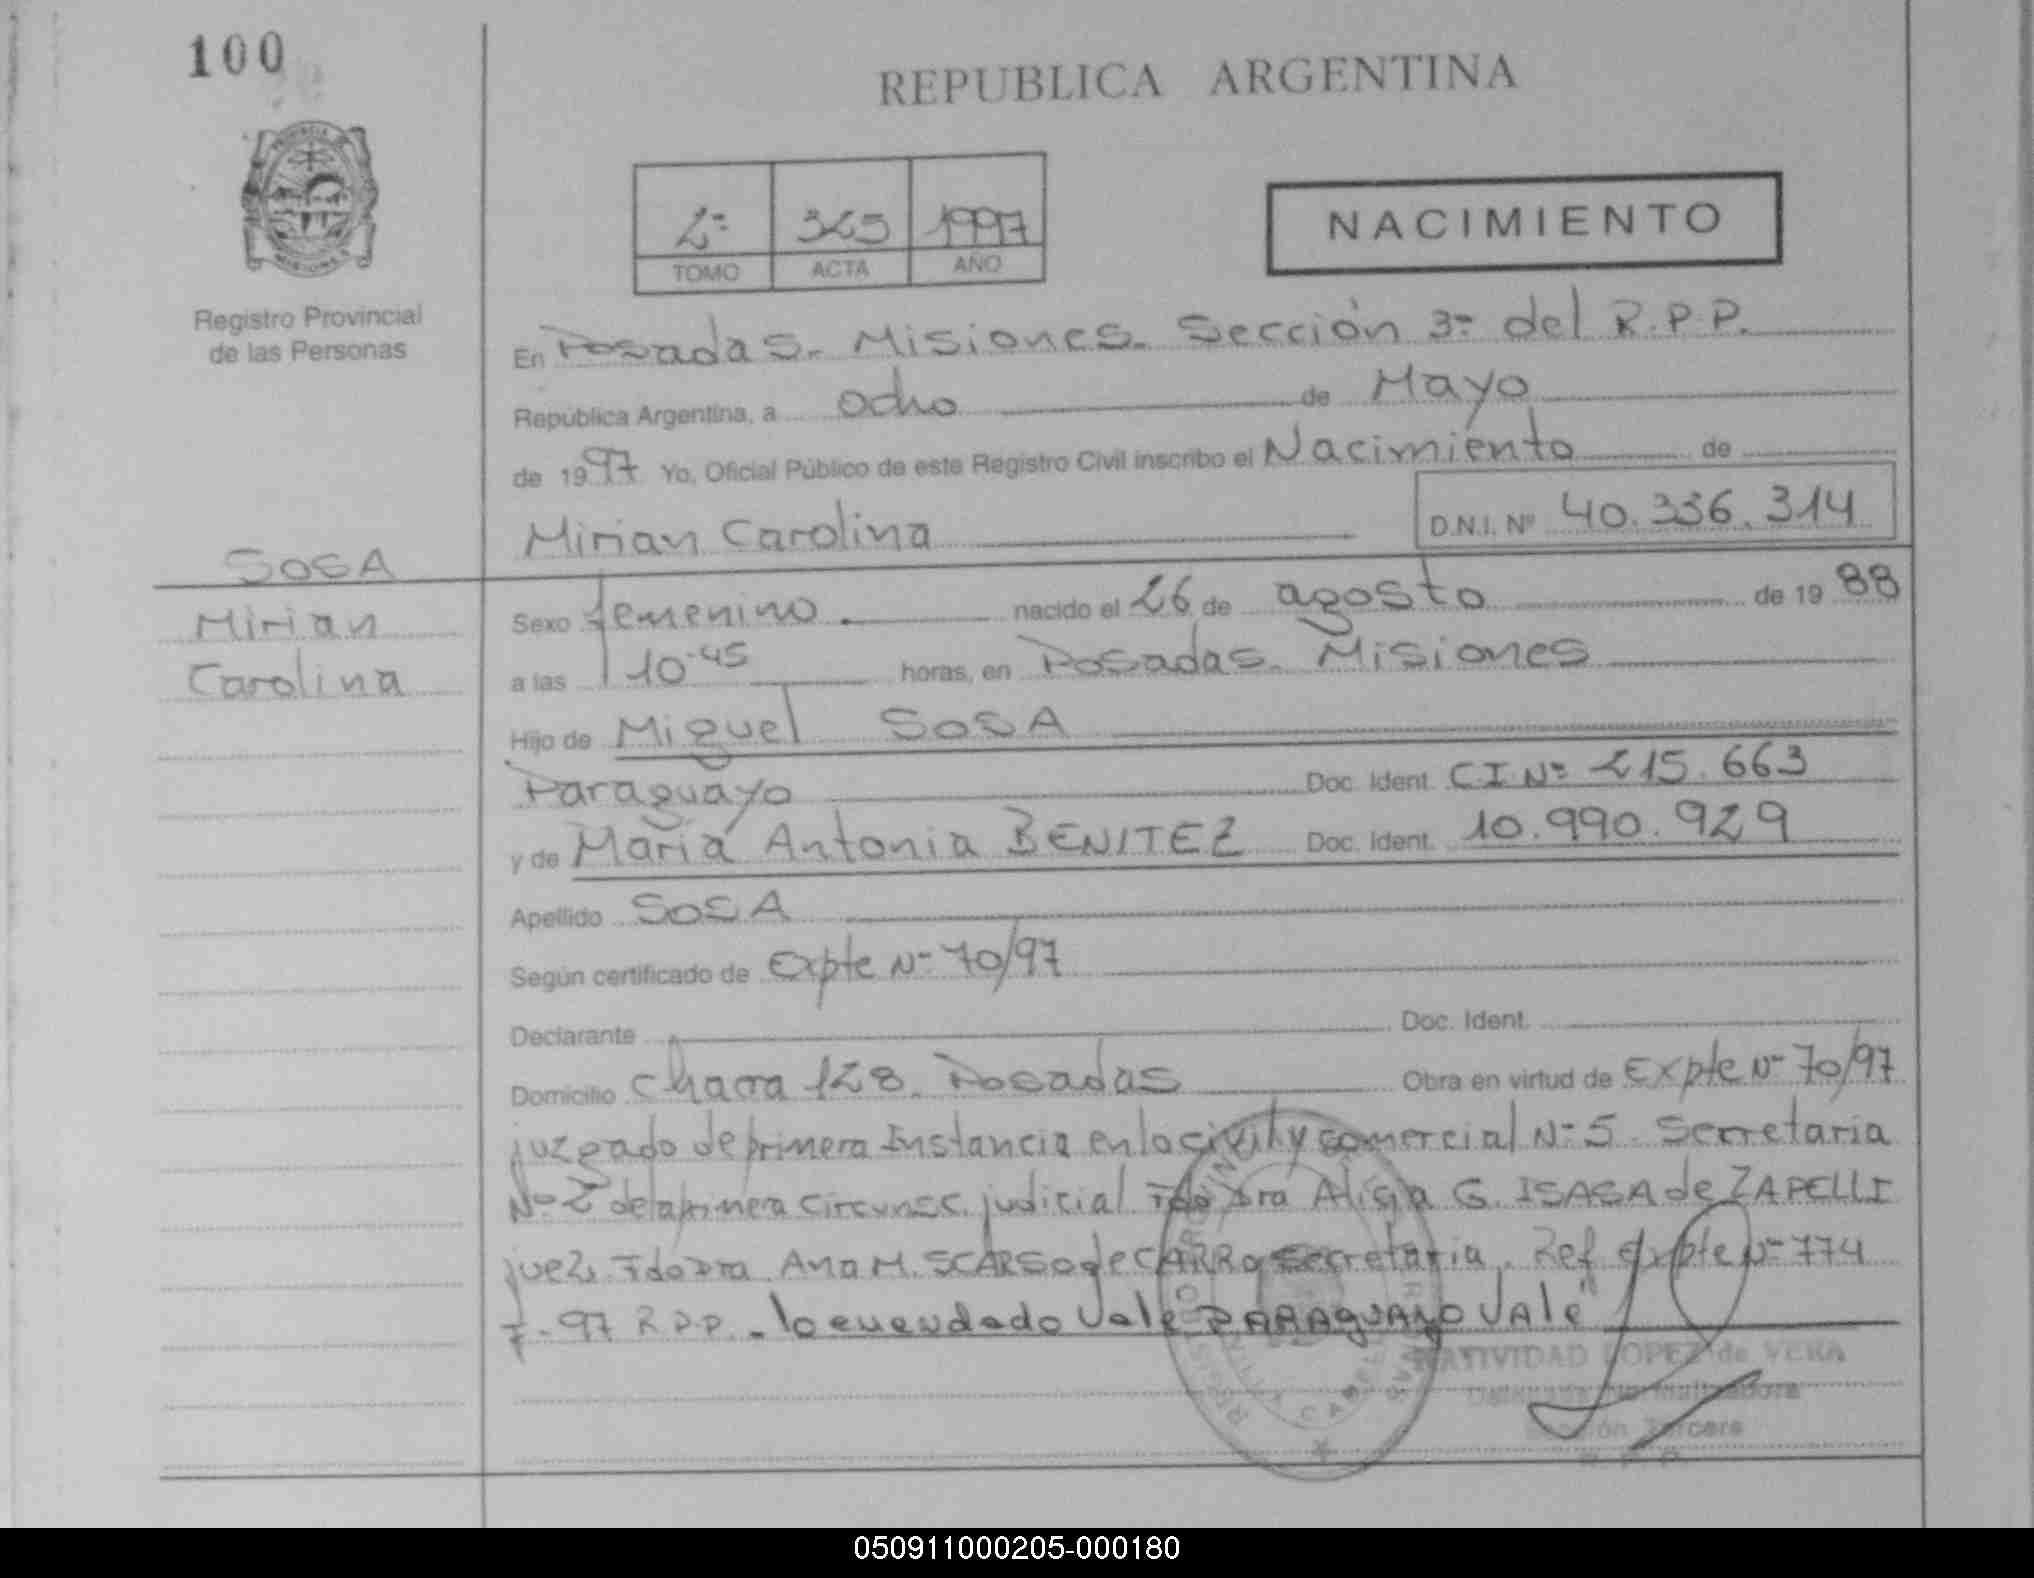 100
REPUBLICA ARGENTINA
2º 325 1997
TOMO ACTA AÑO
NACIMIENTO
Registro Provincial
de las Personas
En Posadas. Misiones. Sección 3º del R.P.P.
República Argentina, a ocho de Mayo
de 1997 Yo, Oficial Público de este Registro Civil inscribo el Nacimiento de
Mirian Carolina D.N.I. Nº 40.336.314
SOSA
Mirian
Carolina
Sexo femenino. nacido el 26 de agosto de 1988
a las 10.45 horas, en Posadas. Misiones
Hijo de Miguel SOSA
Paraguayo Doc. Ident. C.I. Nº 215.663
y de María Antonia BENITEZ Doc. Ident. 10.990.929
Apellido SOSA
Según certificado de Expte Nº 70/97
Declarante Doc. Ident.
Domicilio Chacra 128. Posadas Obra en virtud de Expte Nº 70/97
juzgado de primera Instancia en lo civil y comercial Nº 5 Secretaria
Nº 2 de la primera circunsc. judicial Fdo Dra Alicia G. ISASA de ZAPELLI
juez. Fdo Dra Ana M. SCARSO de CARRO secretaria. Ref Expte Nº 774
7-97 R.P.P. lo enmendado Vale PARAGUAYO VAle"
NATIVIDAD LOPEZ de VERA
Sección Tercera
R. P. P.
050911000205-000180